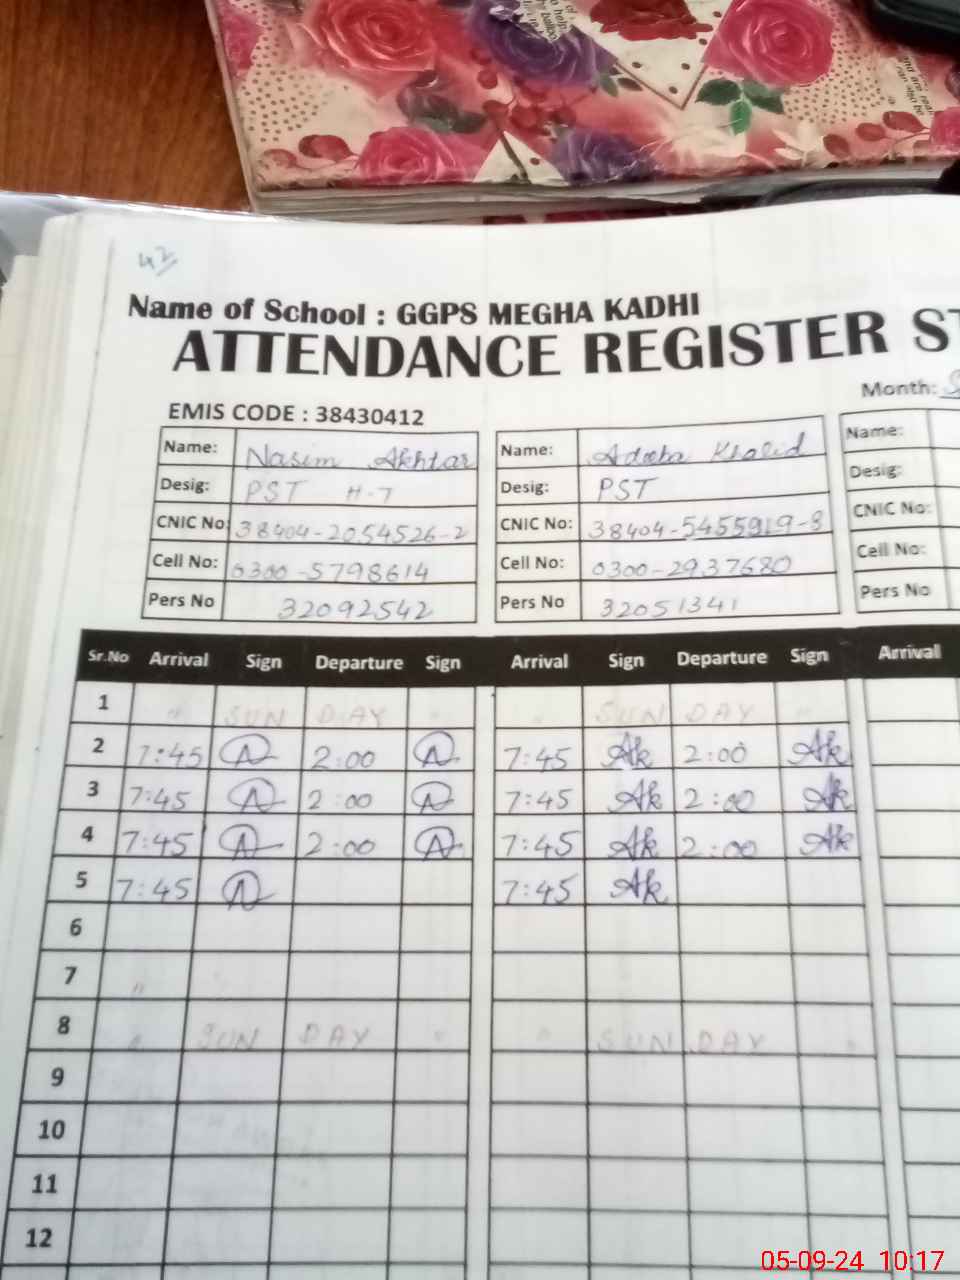 42
Name of School : GGPS MEGHA KADHI
ATTENDANCE REGISTER ST
Month: S
EMIS CODE : 38430412
Name: Nasim Akhtar Name: Adeeba Khalid Name:
Desig: PST H-T Desig: PST Desig:
CNIC No: 38404-2054526-2 CNIC No: 38404-5455919-8 CNIC No:
Cell No: 0300-5798614 Cell No: 0300-2937680 Cell No:
Pers No 32092542 Pers No 32051341 Pers No
Sr.No Arrival Sign Departure Sign Arrival Sign Departure Sign Arrival
1 " SUN DAY " " SUN DAY "
2 7:45 N 2:00 N 7:45 Ak 2:00 Ak
3 7:45 N 2:00 N 7:45 Ak 2:00 Ak
4 7:45 N 2:00 N 7:45 Ak 2:00 Ak
5 7:45 N 7:45 Ak
6
7 "
8 " SUN DAY " " SUN DAY "
9
10
11
12
05-09-24 10:17